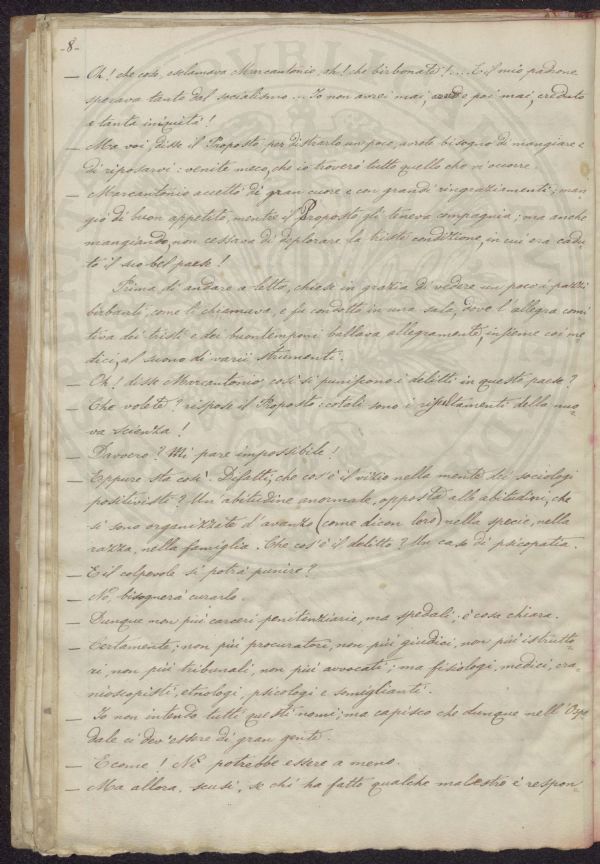 -8-
— Oh! che cosa, esclamava Marcantonio, ah! che birbonate!... E il mio padrone
sperava tanto dal socialismo... Io non avrei mai, e poi mai, creduto
a tanta iniquità!
— Ma voi, disse il Proposto, per distrarlo un poco, avrete bisogno di mangiare e
di riposarvi: venite meco, che io troverò tutto quello che v'occorre.
— Marcantonio accettò di gran cuore e con grandi ringraziamenti; man-
giò di buon appetito, mentre il Proposto gli teneva compagnia; ma anche
mangiando, non cessava di deplorare la triste condizione, in cui era cadu-
to il suo bel paese!
Prima di andare a letto, chiese in grazia di vedere un poco i pazzi
birbanti, come li chiamava, e fu condotto in una sala, dove l'allegra comi
tiva dei tristi e dei buontemponi ballava allegramente, insieme coi me-
dici, al suono di varii strumenti.
— Oh! disse Marcantonio, così si puniscono i delitti in questo paese?
— Che volete? rispose il Proposto: cotali sono i risultamenti della nuo-
va scienza!
— Davvero? Mi pare impossibile!
— Eppure sta così. Difatti, che cos'è il vizio nella mente dei sociologi
positivisti? Un'abitudine anormale, opposta alle abitudini, che
si sono organizzate d'avanzo (come dicon loro) nella specie, nella
razza, nella famiglia. Che cos'è il delitto? Un caso di psicopatia.
— E il colpevole si potrà punire?
— No, bisognerà curarlo.
— Dunque non più carceri penitenziarie, ma spedali: è cosa chiara.
— Certamente; non più procuratori, non più giudici, non più istrutto-
ri, non più tribunali, non più avvocati; ma fisiologi, medici, cra-
nioscopisti, etnologi, psicologi e somiglianti.
— Io non intendo tutti questi nomi; ma capisco che dunque nell'Ospe
dale ci dev'essere di gran gente.
— E come! Nè potrebbe essere a meno.
— Ma allora, scusi, se chi ha fatto qualche malestro è respon-